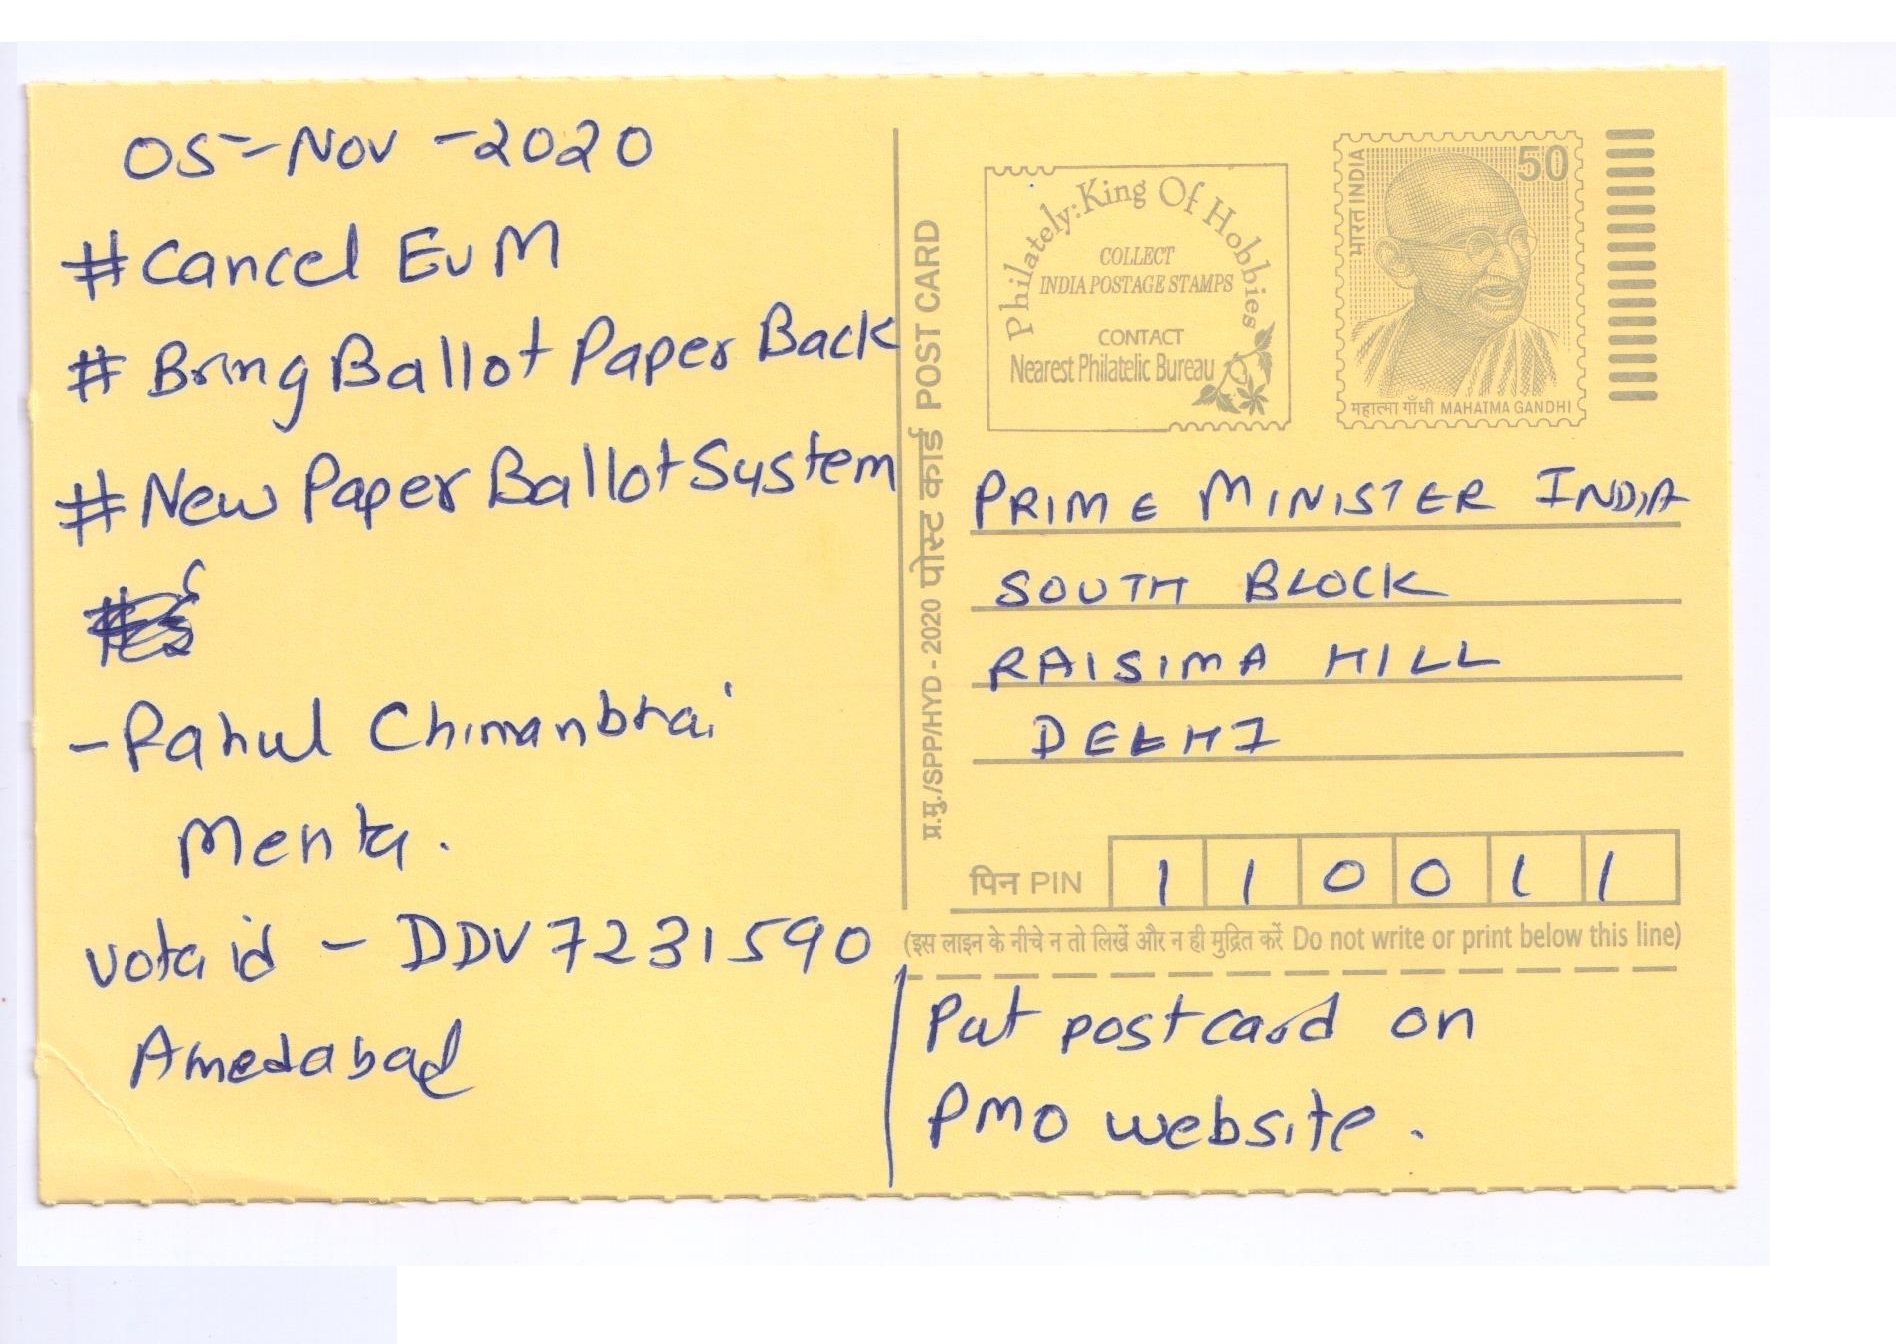 05-Nov-2020
#Cancel EVM
# Bring Ballot Paper Back
#New Paper Ballot System
-Rahul Chimanbhai
Mehta.
vota id - DDV7231590
Amedabad
पोस्ट कार्ड POST CARD
प्र.मु./SPP/HYD - 2020
Philately:King Of Hobbies
COLLECT
INDIA POSTAGE STAMPS
CONTACT
Nearest Philatelic Bureau
भारत INDIA
50
महात्मा गाँधी MAHATMA GANDHI
PRIME MINISTER INDIA
SOUTH BLOCK
RAISIMA HILL
DELHI
पिन PIN 110011
(इस लाइन के नीचे न तो लिखें और न ही मुद्रित करें Do not write or print below this line)
Put postcard on
PMO website.